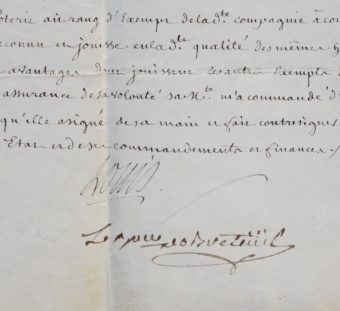 oterie au rang d'Exempt de la d.te compagnie à co
econnu et jouisse en la d.te qualité des mêmes h
avantages dont jouissent les autres Exempts
assurance de sa volonté sa M.té m'a commandé d'
qu'elle a signé de sa main et fait contresigner
Etat et de ses commandements et finances ./
Louis
Breteüil